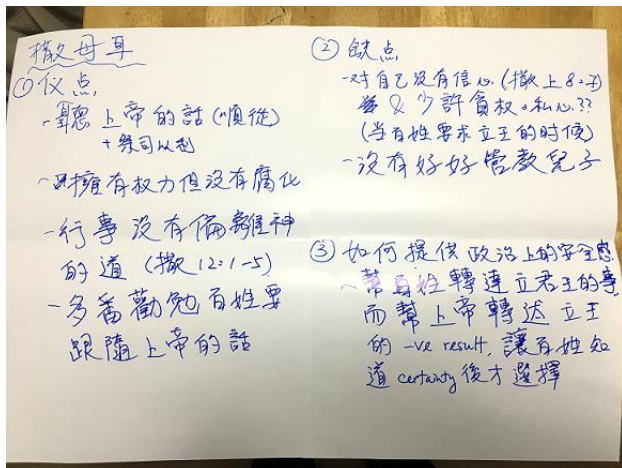 撒母耳
①优点
-聽上帝的話(順從)
+祭司以利
-擁有权力但没有腐化
-行事没有偏離神
的道 (撒12:1-5)
-多番勸勉百姓要
跟隨上帝的話
② 缺点
-对自己没有信心(撒上8:7)
& 少許貪权。私心??
(当百姓要求立王的时候)
-没有好好管教兒子
③ 如何提供政治上的安全感
-幫百姓轉達立君王的事
而幫上帝轉达立王
的 -ve result, 讓百姓知
道 certainty 後才選擇